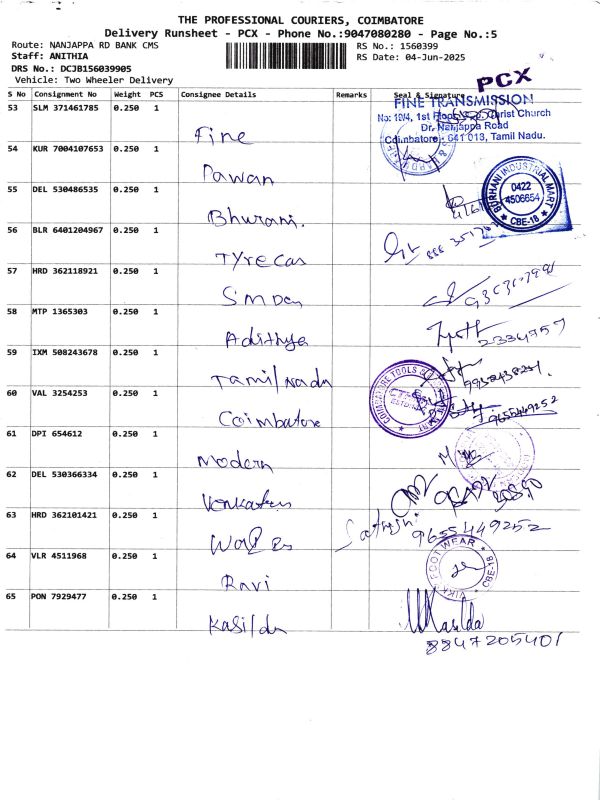 THE PROFESSIONAL COURIERS, COIMBATORE
Delivery Runsheet - PCX - Phone No.:9047080280 - Page No.:5
Route: NANJAPPA RD BANK CMS
RS No.: 1560399
Staff: ANITHIA
RS Date: 04-Jun-2025
DRS No.: DCJB156039905
Vehicle: Two Wheeler Delivery
PCX
S No Consignment No Weight PCS Consignee Details Remarks Seal & Signature
53 SLM 371461785 0.250 1 Fine
FINE TRANSMISSION
No: 19/4, 1st Floor, Christ Church
Dr. Nanjappa Road
Coimbatore - 641 013, Tamil Nadu.
54 KUR 7004107653 0.250 1 Pawan
55 DEL 530486535 0.250 1 Bhurani.
BURHANI INDUSTRIAL MART
0422
4506654
CBE-18
56 BLR 6401204967 0.250 1 Tyrecas
57 HRD 362118921 0.250 1
58 MTP 1365303 0.250 1 Adithya
2334757
59 IXM 508243678 0.250 1 Tamil Nadu
60 VAL 3254253 0.250 1 Coimbatore
9655449252
61 DPI 654612 0.250 1 Modern
62 DEL 530366334 0.250 1
63 HRD 362101421 0.250 1
9655449252
64 VLR 4511968 0.250 1 Ravi
FOOT WEAR
CBE-18
65 PON 7929477 0.250 1
8847205401